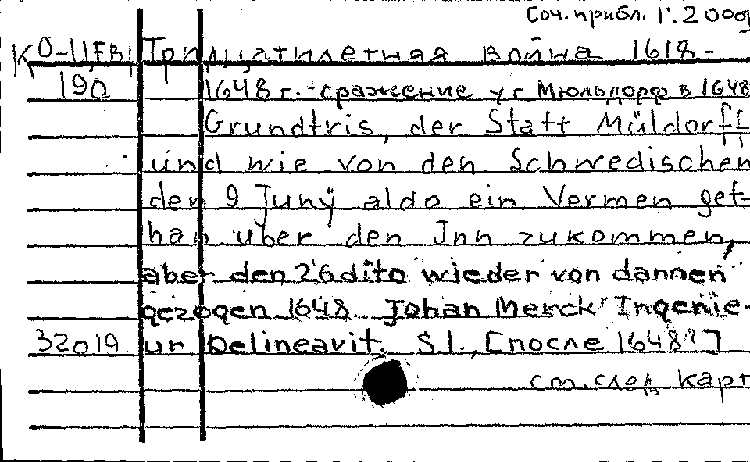 Соч. прибл. 1:2000
КО-ЦЕВ/ Тридцатилетная война 1618-
190 1648 г. - сражение у г. Мюльдорф в 1648
Grundtris, der Statt Müldorff
und wie von den Schwedischen
den 9 Junÿ aldo ein Vermen get-
han uber den Inn zukommen,
aber den 26 dito wieder von dannen
gezogen 1648 Johan Merck Ingenie-
32019 ur Delineavit. S.l., [после 1648?]
см. след. карт